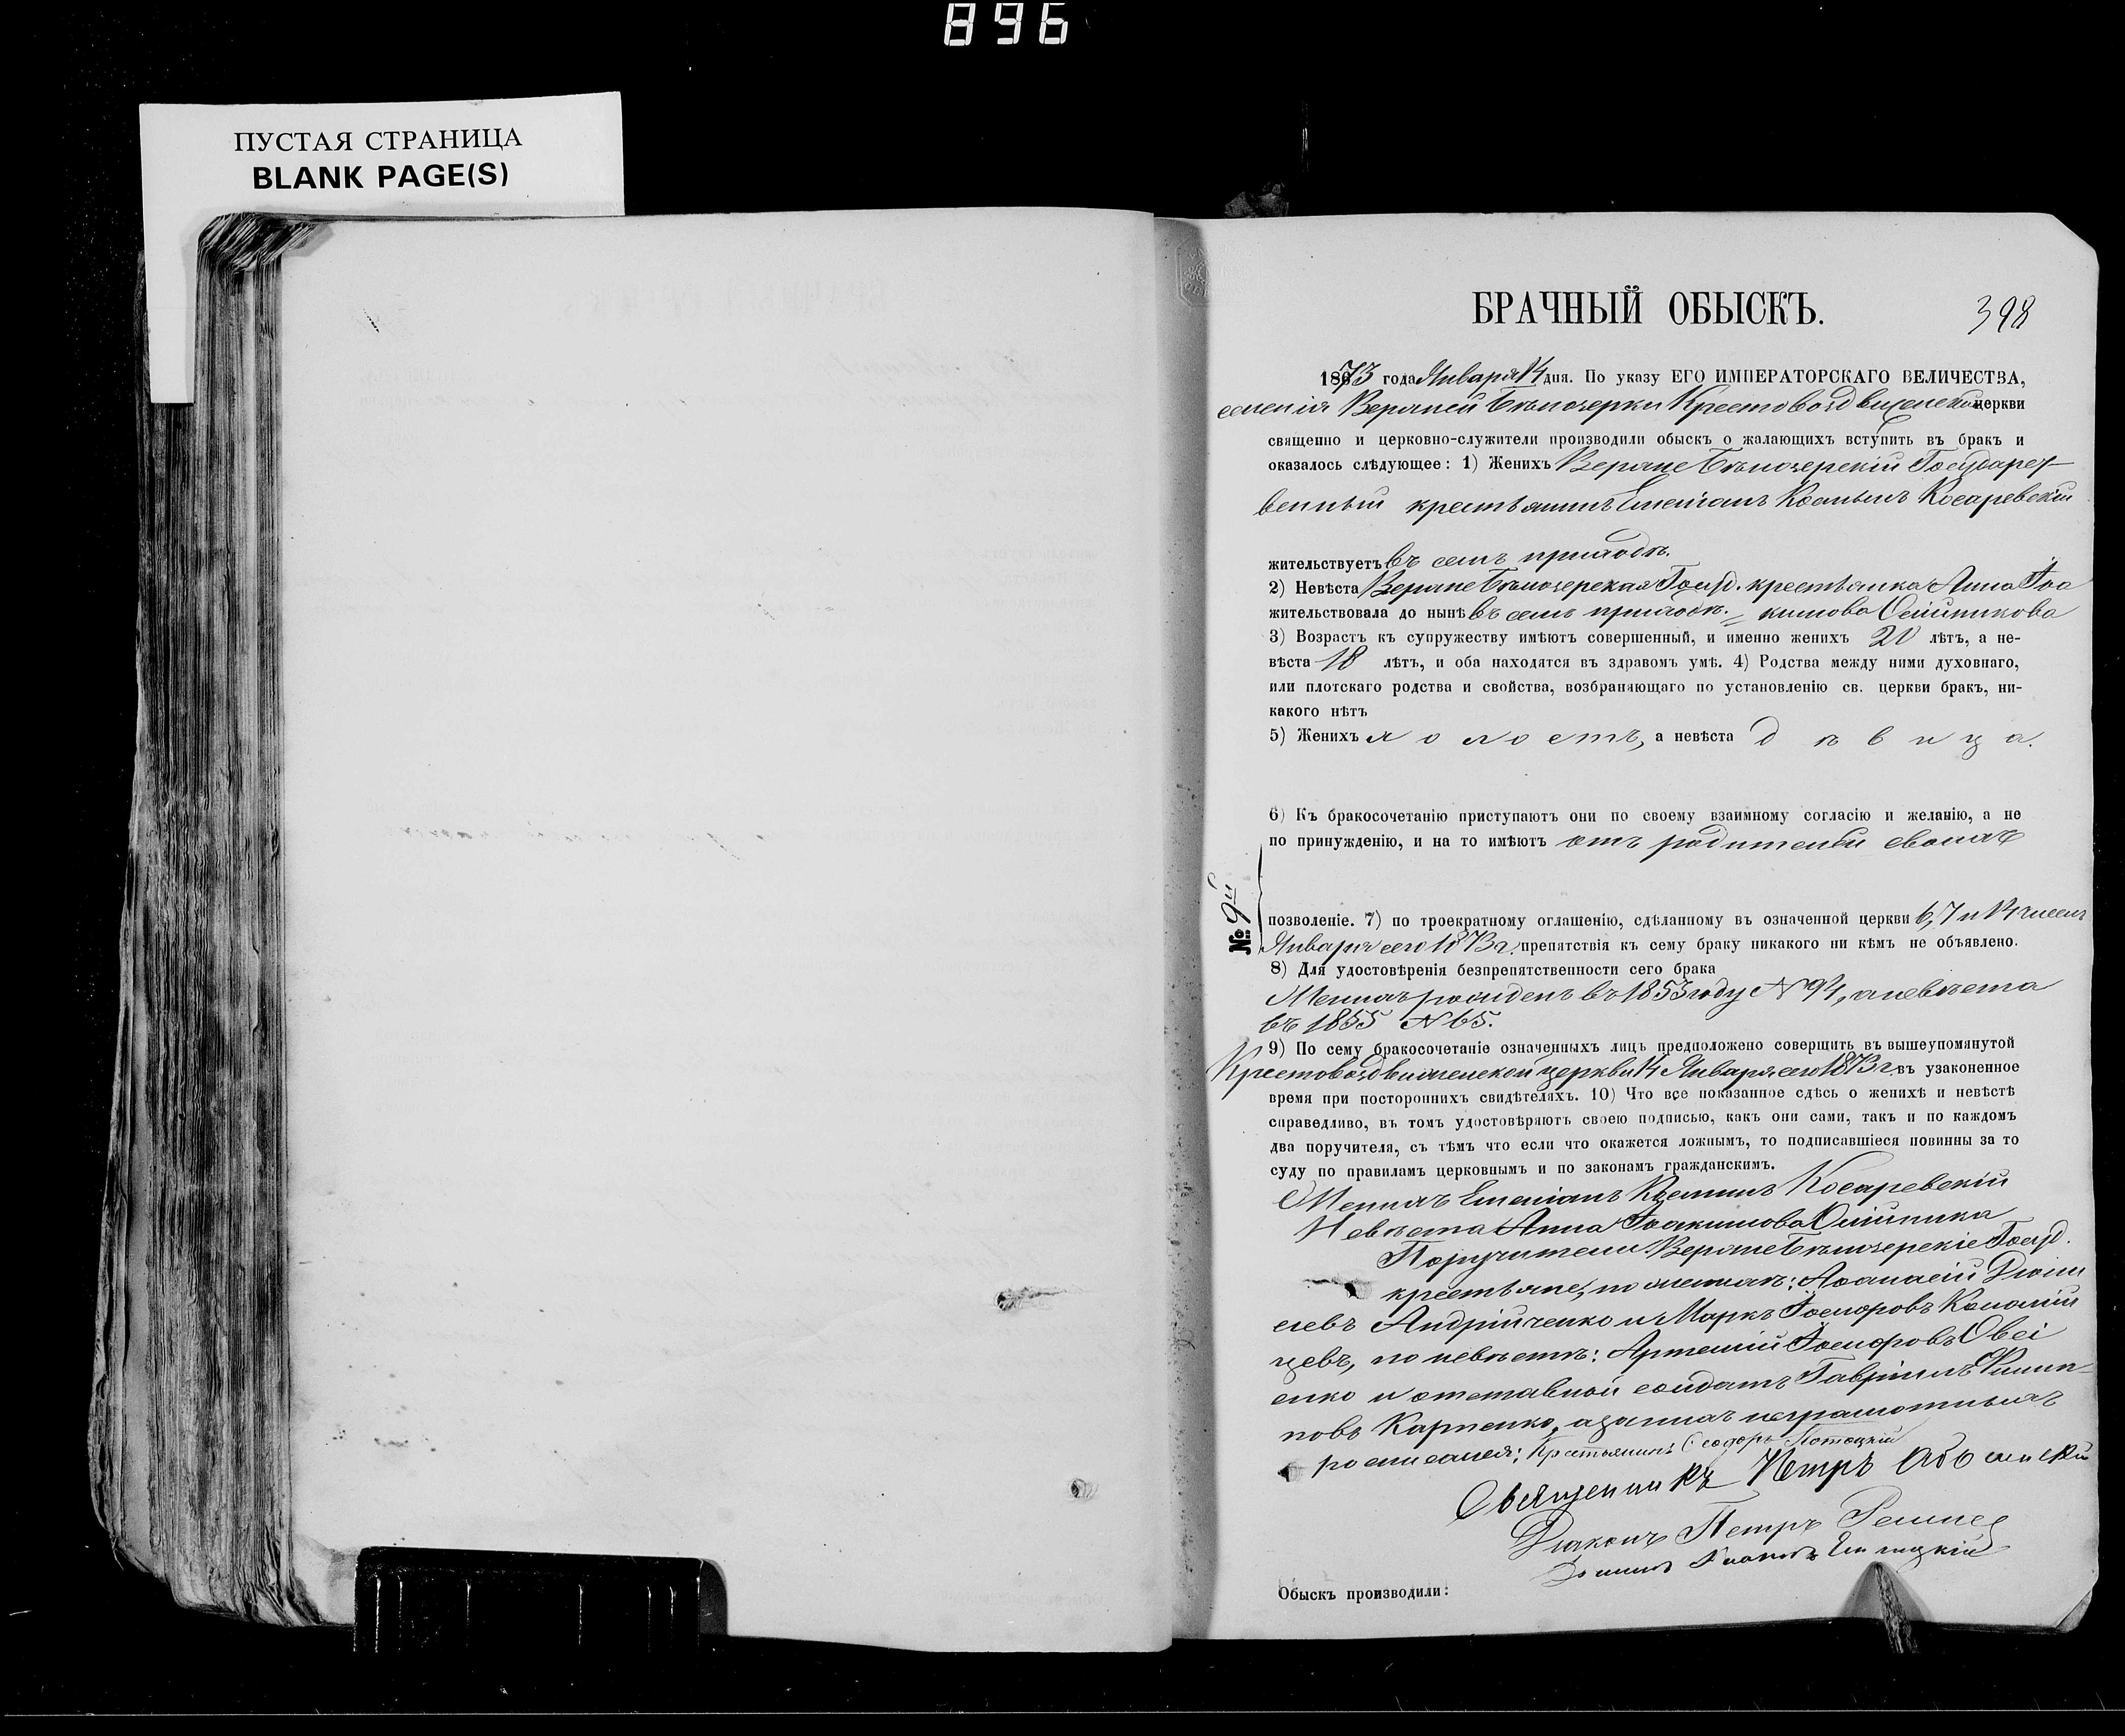 896
ПУСТАЯ СТРАНИЦА
BLANK PAGE(S)
БРАЧНЫЙ ОБЫСКЪ.
398
1873 года Января 14 дня. По указу ЕГО ИМПЕРАТОРСКАГО ВЕЛИЧЕСТВА,
селенія Верхней Бѣлозерки Крестовоздвиженской церкви
священно и церковно-служители производили обыскъ о жалающихъ вступить въ бракъ и
оказалось слѣдующее: 1) Женихъ Верхне Бѣлозерскій Государст-
венный крестьянинъ Емеліанъ Космынъ Косаревскій
жительствуетъ въ семъ приходѣ.
2) Невѣста Верхне Бѣлозерская Госуд. крестьянка Анна Іоа
жительствовала до нынѣ въ семъ приходѣ. = кимова Олійникова
3) Возрастъ къ супружеству имѣютъ совершенный, и именно женихъ 20 лѣтъ, а не-
вѣста 18 лѣтъ, и оба находятся въ здравомъ умѣ. 4) Родства между ними духовнаго,
или плотскаго родства и свойства, возбраняющаго по установленію св. церкви бракъ, ни-
какого нѣтъ
5) Женихъ холостъ, а невѣста дѣвица.
6) Къ бракосочетанію приступаютъ они по своему взаимному согласію и желанію, а не
по принужденію, и на то имѣютъ отъ родителей своихъ
№ 9й
позволеніе. 7) по троекратному оглашенію, сдѣланному въ означенной церкви 6, 7 и 14 числъ
Января сего 1873 г. препятствія къ сему браку никакого ни кѣмъ не объявлено.
8) Для удостовѣренія безпрепятственности сего брака
Женихъ рожденъ въ 1853 году N 94, а невѣста
въ 1855 N 65.
9) По сему бракосочетаніе означенныхъ лицъ предположено совершить въ вышеупомянутой
Крестовоздвиженской церкви 14 Января сего 1873 г. въ узаконенное
время при постороннихъ свидѣтеляхъ. 10) Что все показанное сдѣсь о женихѣ и невѣстѣ
справедливо, въ томъ удостовѣряютъ своею подписью, какъ они сами, такъ и по каждомъ
два поручителя, съ тѣмъ что если что окажется ложнымъ, то подписавшіеся повинны за то
суду по правиламъ церковнымъ и по законамъ гражданскимъ.
Женихъ Емеліанъ Косминъ Косаревскій
Невѣста Анна Іоакимова Олійника
Поручители Верхне Бѣлозерскіе Госуд.
крестьяне, по женихѣ: Аѳанасій
Андрійченко и Маркъ Ѳеодоровъ
цевъ, по невѣстѣ: Артемій Ѳеодоровъ Овсі
енко и отставной солдатъ Гавріилъ Филип-
повъ Карпенко, а за нихъ неграмотныхъ
росписался: Крестьянинъ Ѳеодоръ Потоцкій
Священникъ Петръ
Діаконъ Петръ
Обыскъ производили: